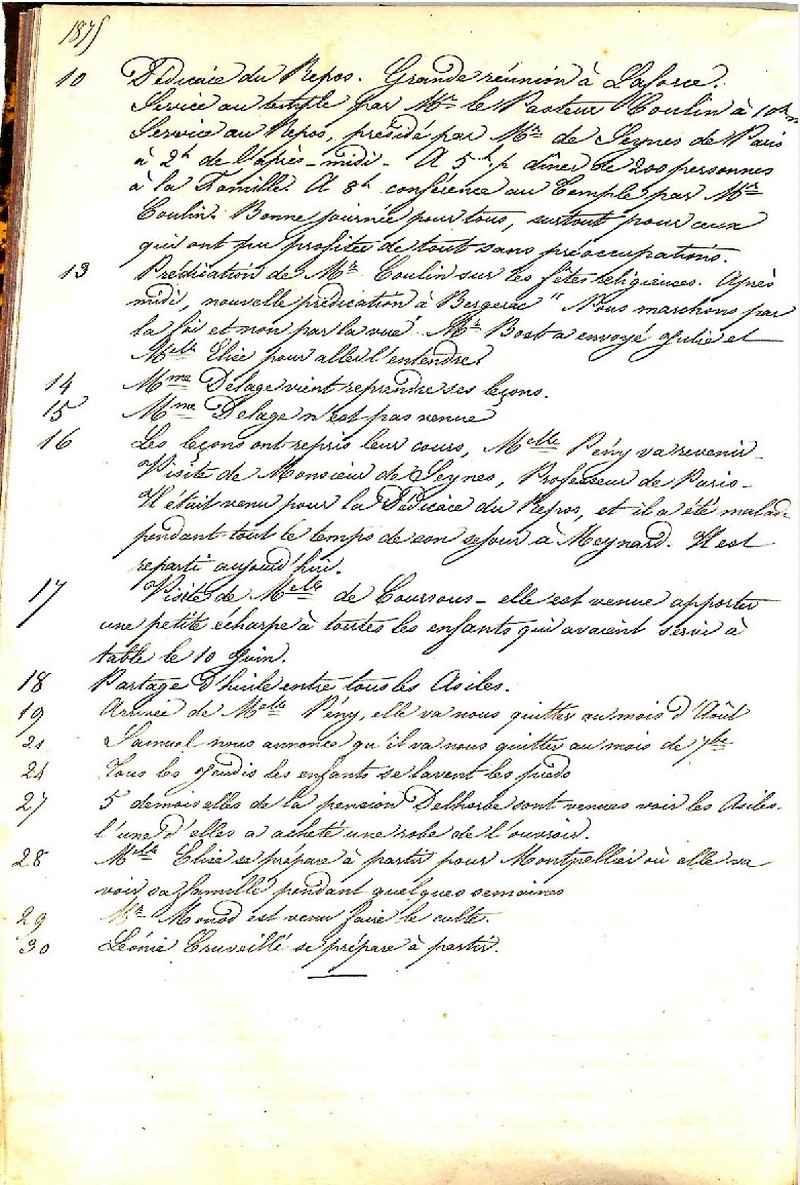 1875
10 Dédicace du Repos. Grande réunion à Laforce.
Service au temple par Mr le Pasteur Coulin à 10h
Service au Repos, présidé par Mr de Seynes de Paris
à 2h de l'après-midi - A 5h dîner de 200 personnes
à la Famille. A 8h conférence au Temple par Mr
Coulin. Bonne journée pour tous, surtout pour ceux
qui ont pu profiter de tout sans préoccupations.
13 Prédication de Mr Coulin sur les fêtes religieuses. Après
midi, nouvelle prédication à Bergerac "Nous marchons par
la foi et non par la vue". Mr Bost a envoyé Julie et
Melle Elise pour aller l'entendre.
14 Mme Delage vient reprendre ses leçons.
15 Mme Delage n'est pas venue
16 Les leçons ont repris leur cours, Melle Pény va revenir -
Visite de Monsieur de Seynes, Professeur de Paris -
Il était venu pour la Dédicace du Repos, et il a été malade
pendant tout le temps de son séjour à Meynard. Il est
reparti aujourd'hui.
17 Visite de Melle de Coursous - elle est venue apporter
une petite écharpe à toutes les enfants qui avaient servi à
table le 10 Juin.
18 Partage d'huile entre tous les Asiles.
19 Arrivée de Melle Pény, elle va nous quitter au mois d'Août
21 Samuel nous annonce qu'il va nous quitter au mois de 7bre
24 Tous les Jeudis les enfants se lavent les pieds
27 5 demoiselles de la pension Delhorbe sont venues voir les Asiles.
l'une d'elles a acheté une robe de l'ouvroir.
28 Melle Elise se prépare à partir pour Montpellier où elle va
voir sa famille pendant quelques semaines
29 Mr Monod est venu faire le culte.
30 Léonie Cruveillé se prépare à partir.